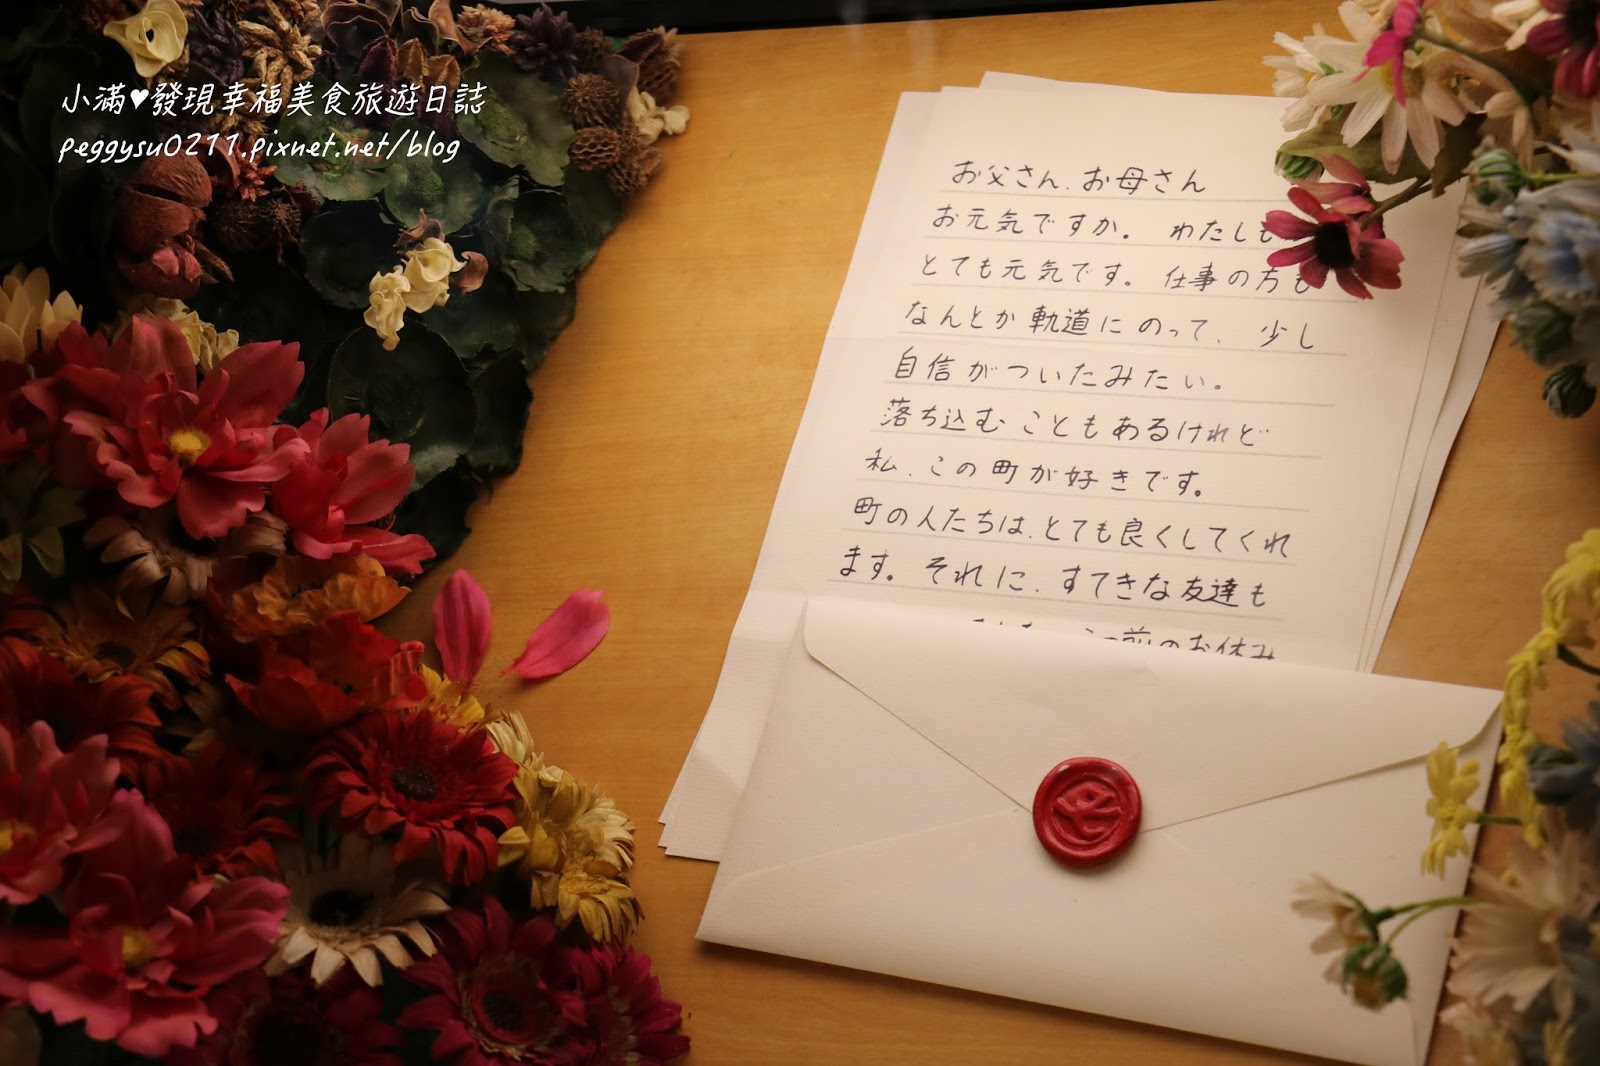 小滿♥發現幸福美食旅遊日誌
peggysu0211.pixnet.net/blog
お父さん、お母さん
お元気ですか。 わたしも
とても元気です。 仕事の方も
なんとか軌道にのって、 少し
自信がついたみたい。
落ち込むこともあるけれど
私、この町が好きです。
町の人たちは、とても良くしてくれ
ます。 それに、すてきな友達も
前のお休み